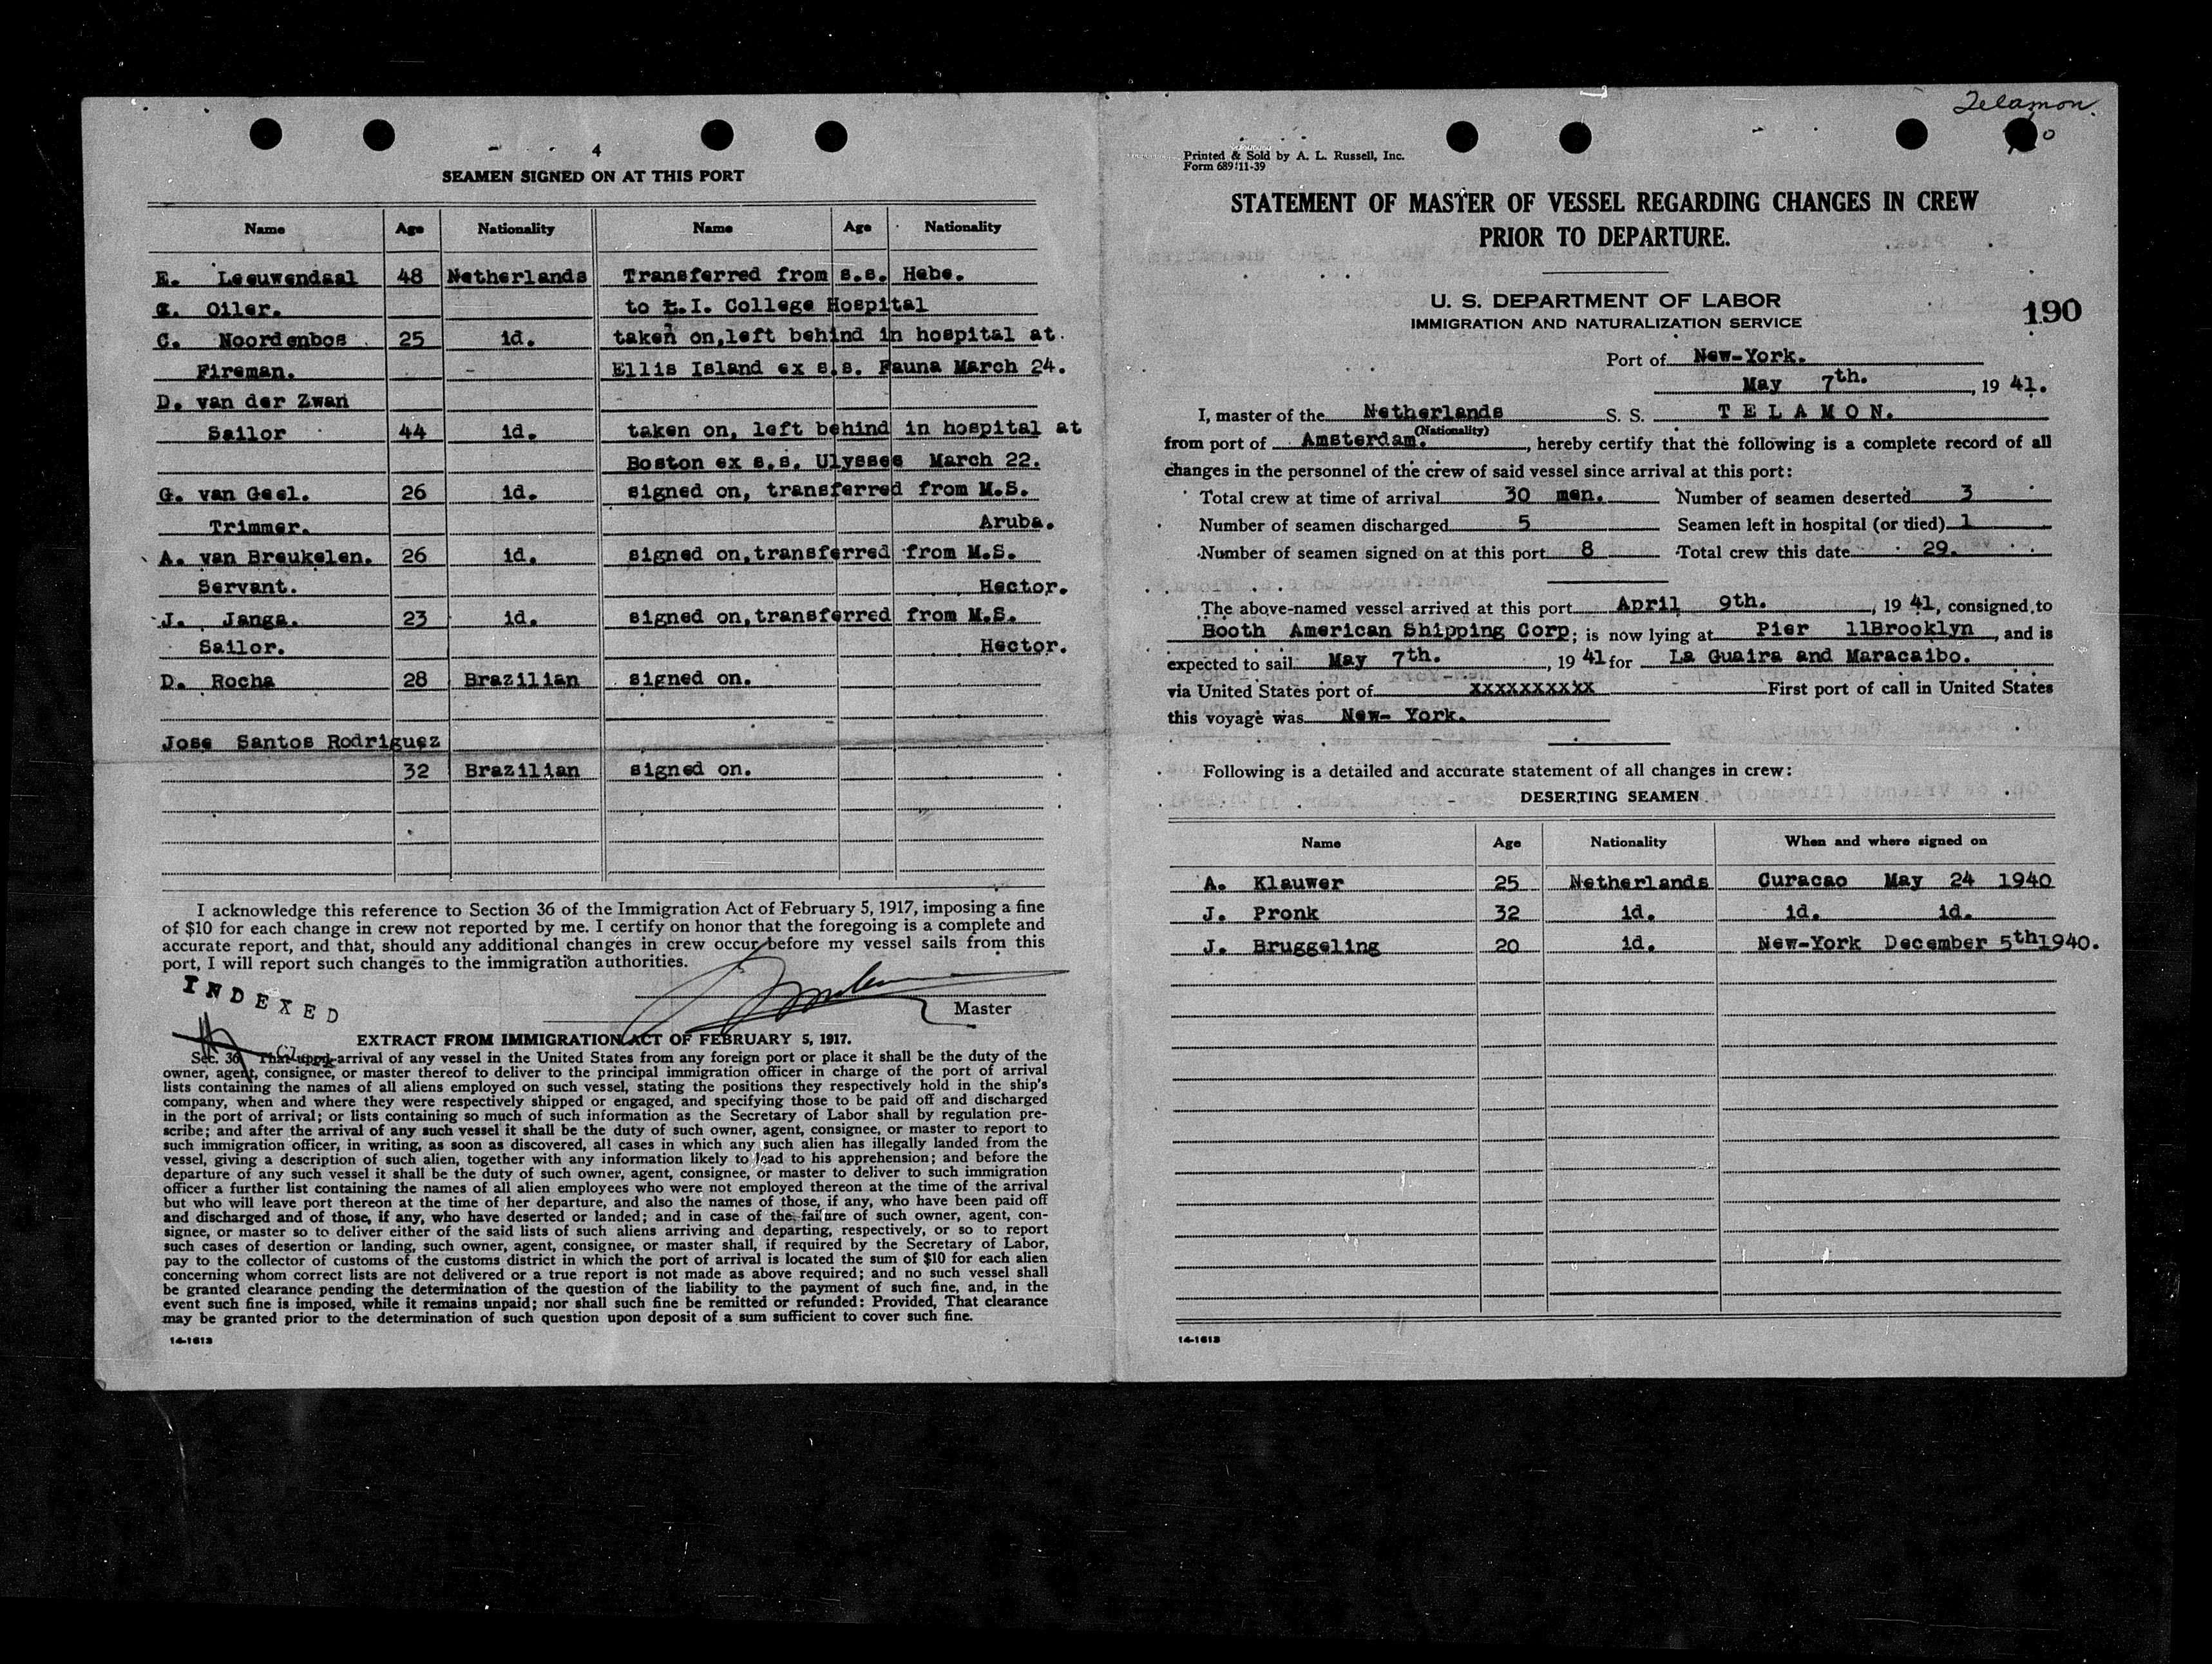 4
SEAMEN SIGNED ON AT THIS PORT
Name Age Nationality Name Age Nationality
E. Leeuwendaal 48 Netherlands Transferred from s.s. Hebe.
Oiler. to L.I. College Hospital
C. Noordenbos 25 id. taken on, left behind in hospital at.
Fireman. Ellis Island ex s.s. Fauna March 24.
D. van der Zwan
Sailor 44 id. taken on, left behind in hospital at
Boston ex s.s. Ulysses March 22.
G. van Geel. 26 id. signed on, transferred from M.S.
Trimmer. Aruba.
A. van Breukelen. 26 id. signed on, transferred from M.S.
Servant. Hector.
J. Janga. 23 id. signed on, transferred from M.S.
Sailor. Hector.
D. Rocha 28 Brazilian signed on.
Jose Santos Rodriguez
32 Brazilian signed on.
I acknowledge this reference to Section 36 of the Immigration Act of February 5, 1917, imposing a fine
of $10 for each change in crew not reported by me. I certify on honor that the foregoing is a complete and
accurate report, and that, should any additional changes in crew occur before my vessel sails from this
port, I will report such changes to the immigration authorities.
INDEXED
Master
EXTRACT FROM IMMIGRATION ACT OF FEBRUARY 5, 1917.
Sec. 36. That upon arrival of any vessel in the United States from any foreign port or place it shall be the duty of the
owner, agent, consignee, or master thereof to deliver to the principal immigration officer in charge of the port of arrival
lists containing the names of all aliens employed on such vessel, stating the positions they respectively hold in the ship's
company, when and where they were respectively shipped or engaged, and specifying those to be paid off and discharged
in the port of arrival; or lists containing so much of such information as the Secretary of Labor shall by regulation pre-
scribe; and after the arrival of any such vessel it shall be the duty of such owner, agent, consignee, or master to report to
such immigration officer, in writing, as soon as discovered, all cases in which any such alien has illegally landed from the
vessel, giving a description of such alien, together with any information likely to lead to his apprehension; and before the
departure of any such vessel it shall be the duty of such owner, agent, consignee, or master to deliver to such immigration
officer a further list containing the names of all alien employees who were not employed thereon at the time of the arrival
but who will leave port thereon at the time of her departure, and also the names of those, if any, who have been paid off
and discharged and of those, if any, who have deserted or landed; and in case of the failure of such owner, agent, con-
signee, or master so to deliver either of the said lists of such aliens arriving and departing, respectively, or so to report
such cases of desertion or landing, such owner, agent, consignee, or master shall, if required by the Secretary of Labor,
pay to the collector of customs of the customs district in which the port of arrival is located the sum of $10 for each alien
concerning whom correct lists are not delivered or a true report is not made as above required; and no such vessel shall
be granted clearance pending the determination of the question of the liability to the payment of such fine, and, in the
event such fine is imposed, while it remains unpaid; nor shall such fine be remitted or refunded: Provided, That clearance
may be granted prior to the determination of such question upon deposit of a sum sufficient to cover such fine.
14-1613
Telamon.
Printed & Sold by A. L. Russell, Inc.
Form 689 11-39
STATEMENT OF MASTER OF VESSEL REGARDING CHANGES IN CREW
PRIOR TO DEPARTURE.
U. S. DEPARTMENT OF LABOR
IMMIGRATION AND NATURALIZATION SERVICE
190
Port of New-York.
May 7th. , 19 41.
I, master of the Netherlands S. S. TELAMON.
(Nationality)
from port of Amsterdam. , hereby certify that the following is a complete record of all
changes in the personnel of the crew of said vessel since arrival at this port:
Total crew at time of arrival 30 men. Number of seamen deserted 3
Number of seamen discharged 5 Seamen left in hospital (or died) 1
Number of seamen signed on at this port 8 Total crew this date 29.
The above-named vessel arrived at this port April 9th. , 19 41, consigned to
Booth American Shipping Corp; is now lying at Pier 11Brooklyn , and is
expected to sail May 7th. , 19 41 for La Guaira and Maracaibo.
via United States port of xxxxxxxxxx First port of call in United States
this voyage was New- York.
Following is a detailed and accurate statement of all changes in crew:
DESERTING SEAMEN
Name Age Nationality When and where signed on
A. Klauwer 25 Netherlands Curacao May 24 1940
J. Pronk 32 id. id. id.
J. Bruggeling 20 id. New-York December 5th 1940.
14-1613